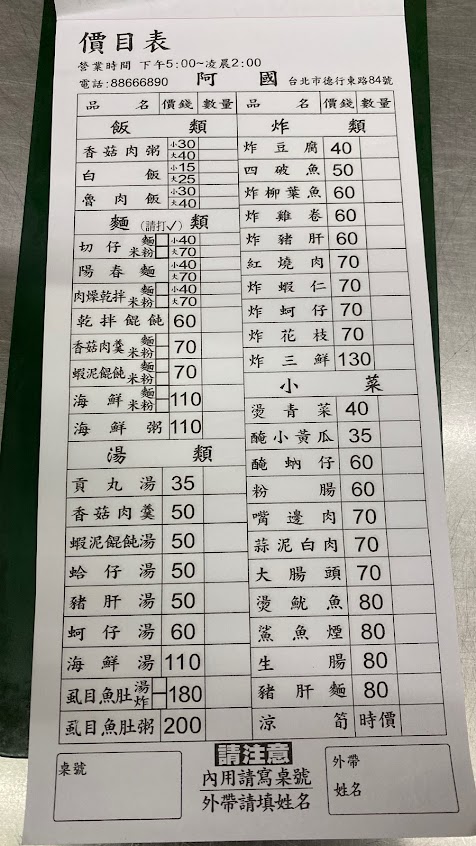 價目表
營業時間 下午5:00~凌晨2:00
電話:88666890 阿國 台北市德行東路84號
品名 價錢 數量
飯類
香菇肉粥 小30 大40
白飯 小15 大25
魯肉飯 小30 大40
麵(請打✓)類
切仔 麵 米粉 小40 大70
陽春麵 小40 大70
肉燥乾拌 麵 米粉 小40 大70
乾拌餛飩 60
香菇肉羹 麵 米粉 70
蝦泥餛飩 麵 米粉 70
海鮮 麵 米粉 110
海鮮粥 110
湯類
貢丸湯 35
香菇肉羹 50
蝦泥餛飩湯 50
蛤仔湯 50
豬肝湯 50
蚵仔湯 60
海鮮湯 110
虱目魚肚 湯 炸 180
虱目魚肚粥 200
品名 價錢 數量
炸類
炸豆腐 40
四破魚 50
炸柳葉魚 60
炸雞卷 60
炸豬肝 60
紅燒肉 70
炸蝦仁 70
炸蚵仔 70
炸花枝 70
炸三鮮 130
小菜
燙青菜 40
醃小黃瓜 35
醃蚋仔 60
粉腸 60
嘴邊肉 70
蒜泥白肉 70
大腸頭 70
燙魷魚 80
鯊魚煙 80
生腸 80
豬肝麵 80
涼筍 時價
桌號
請注意
內用請寫桌號
外帶請填姓名
外帶
姓名